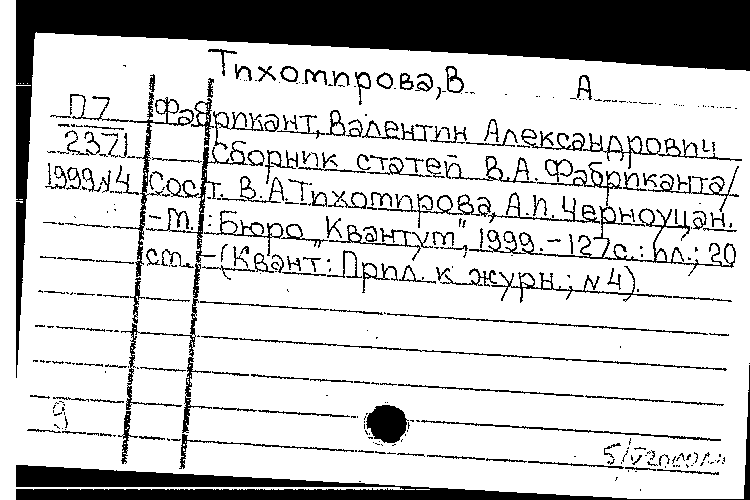 Тихомирова, В. А
П7 Фабрикант, Валентин Александрович
2371 Сборник статей В.А. Фабриканта/
1999 N4 Сост. В.А Тихомирова, А.И. Черноуцан.
-М.: Бюро "Квантум", 1999.-127с.: ил.; 20
ст. -(Квант: Прил. к журн.; N4)
9